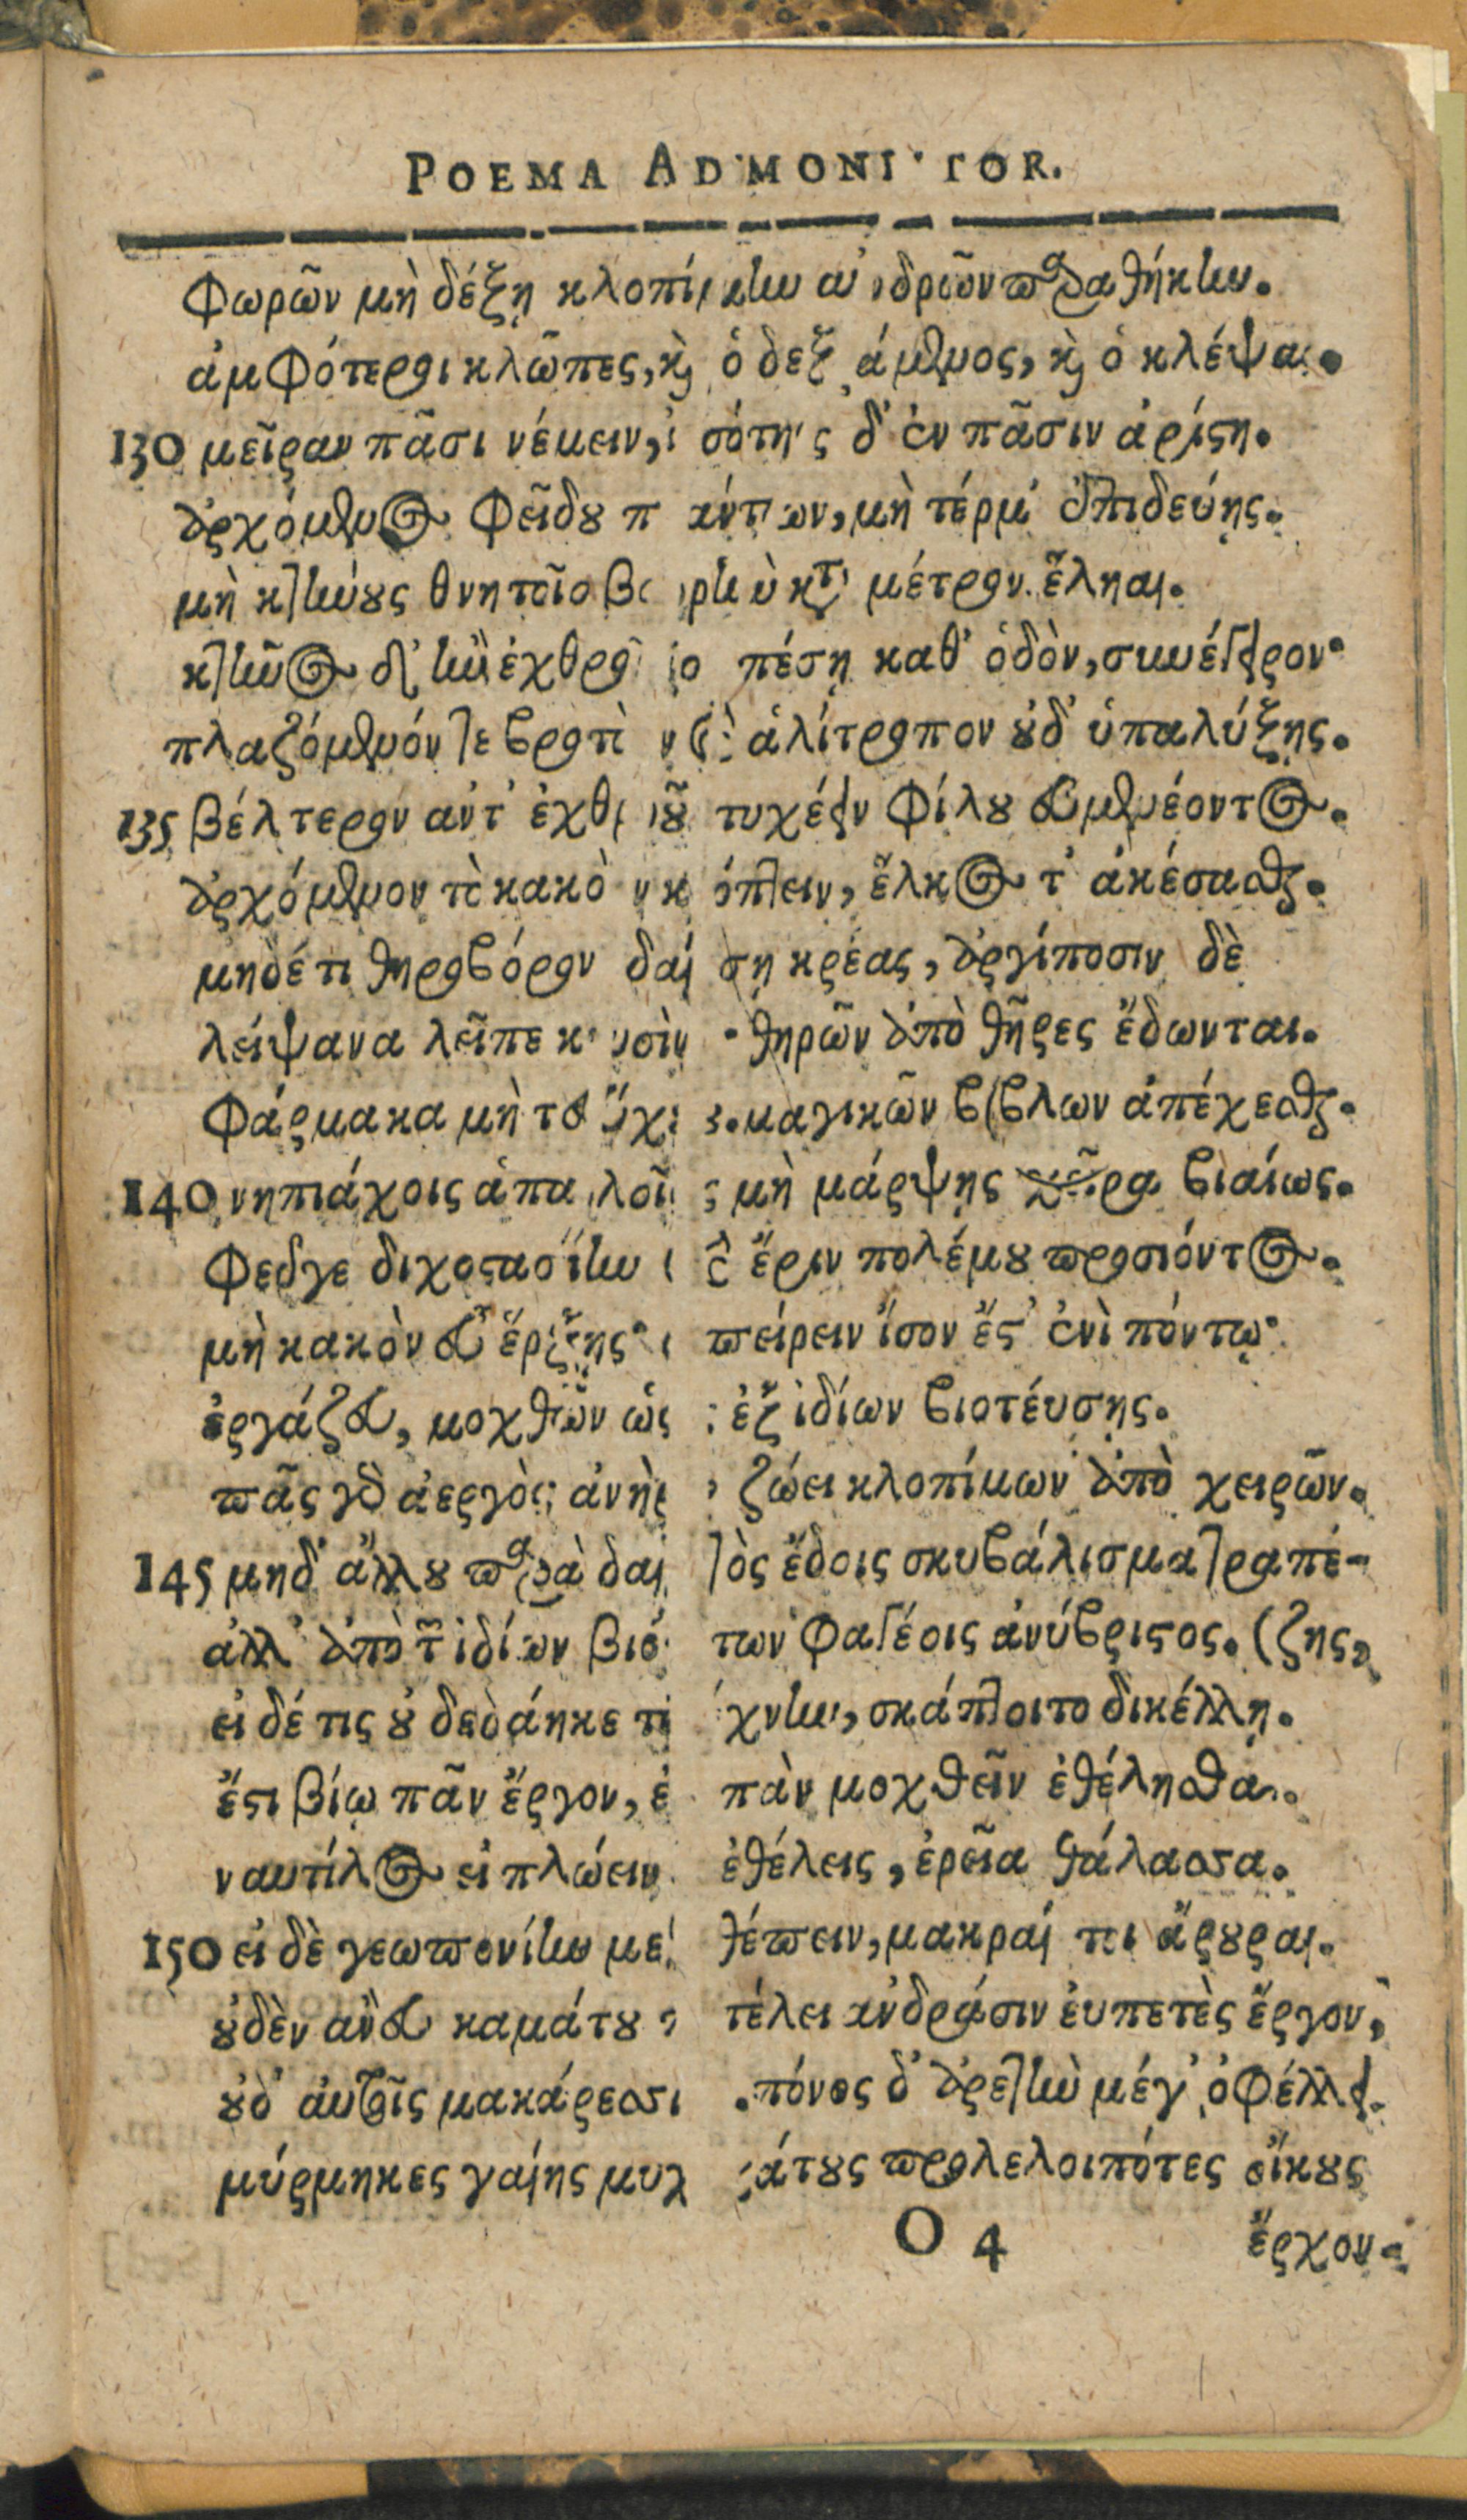 POEMA ADMONITOR.
Φωρῶν μὴ δέξῃ κλοπίμην ἀνδρῶν παραθήκην.
ἀμφότεροι κλῶπες, καὶ ὁ δεξάμενος, καὶ ὁ κλέψας.
130 μεῖραν πᾶσι νέμειν, ἰσότης δ' ἐν πᾶσιν ἀρίστη.
ἀρχόμενος φείδου πάντων, μὴ τέρμ' ἐπιδεύῃς.
μὴ κτήνους θνητοῖο βορὴν κατὰ μέτρον ἕληαι.
κτῆνος δ' ἢν ἐχθροῖο πέσῃ καθ' ὁδὸν, συνέγειρον·
πλαζόμενόν τε βροτὸν καὶ ἀλίτροπον οὐδ' ὑπαλύξῃς.
135 βέλτερον ἀντ' ἐχθροῦ τυχεῖν φίλου εὐμενέοντος.
ἀρχόμενον τὸ κακὸν κόπτειν, ἕλκος τ' ἀκέσασθαι.
μηδέ τι θηροβόρον δαίσῃ κρέας, ἀργίποσιν δὲ
λείψανα λεῖπε κυσὶν· θηρῶν ἀπὸ θῆρες ἔδωνται.
Φάρμακα μὴ τεύχειν. μαγικῶν βίβλων ἀπέχεσθαι.
140 νηπιάχοις ἁπαλοῖς μὴ μάρψῃς χεῖρα βιαίως.
Φεῦγε διχοστασίην καὶ ἔριν πολέμου προσιόντος.
μὴ κακὸν εὖ ἔρξῃς· σπείρειν ἴσον ἔστ' ἐνὶ πόντῳ·
ἐργάζευ, μοχθῶν ὡς ἐξ ἰδίων βιοτεύσῃς.
πᾶς γὰρ ἀεργὸς ἀνὴρ ζώει κλοπίμων ἀπὸ χειρῶν.
145 μηδ' ἄλλου παρὰ δαιτὸς ἔδοις σκυβάλισμα τραπέ-
ἀλλ' ἀπὸ τῶν ἰδίων βιότων φαγέοις ἀνύβριστος. (ζης,
εἰ δέ τις οὐ δεδάηκε τέχνην, σκάπτοιτο δικέλλῃ.
ἔστι βίῳ πᾶν ἔργον, ἐπὰν μοχθεῖν ἐθέλησθα.
ναυτίλος εἰ πλώειν ἐθέλεις, ἐρεῖα θάλασσα.
150 εἰ δὲ γεωπονίην μεθέπειν, μακραί τοι ἄρουραι.
οὐδὲν ἄνευ καμάτου πέλει ἀνδράσιν εὐπετὲς ἔργον,
οὐδ' αὐτοῖς μακάρεσσι. πόνος δ' ἀρετὴν μέγ' ὀφέλλει.
μύρμηκες γαίης μυχάτους προλελοιπότες οἴκους
O 4 ἔρχον-